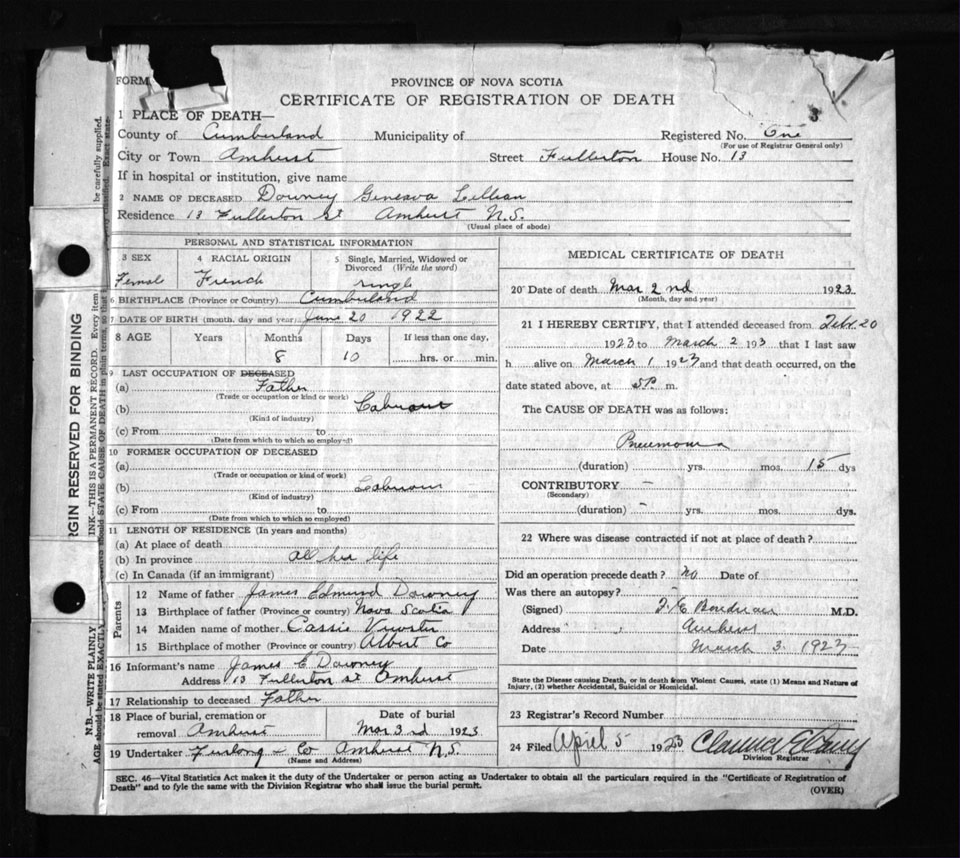 FORM
PROVINCE OF NOVA SCOTIA
CERTIFICATE OF REGISTRATION OF DEATH
3
1 PLACE OF DEATH—
County of Cumberland Municipality of Registered No. One
(For use of Registrar General only)
City or Town Amhurst Street Fullerton House No. 13
If in hospital or institution, give name
2 NAME OF DECEASED Downey Geneava Lillian
Residence 13 Fullerton St Amhurst N.S.
(Usual place of abode)
PERSONAL AND STATISTICAL INFORMATION
3 SEX 4 RACIAL ORIGIN 5 Single, Married, Widowed or Divorced (Write the word)
Femal French single
6 BIRTHPLACE (Province or Country) Cumberland
7 DATE OF BIRTH (month, day and year) June 20 1922
8 AGE Years Months Days If less than one day,
8 10 hrs. or min.
9 LAST OCCUPATION OF DECEASED
(a) Father
(Trade or occupation or kind or work)
(b)
(Kind of industry)
(c) From to
(Date from which to which so employed)
10 FORMER OCCUPATION OF DECEASED
(a)
(Trade or occupation or kind of work)
(b)
(Kind of industry)
(c) From to
(Date from which to which so employed)
11 LENGTH OF RESIDENCE (In years and months)
(a) At place of death
(b) In province all her life
(c) In Canada (if an immigrant)
Parents
12 Name of father James Edmund Downey
13 Birthplace of father (Province or country) Nova Scotia
14 Maiden name of mother Cassie
15 Birthplace of mother (Province or country) Albert Co
16 Informant's name James E Downey
Address 13 Fullerton St Amhurst
17 Relationship to deceased Father
18 Place of burial, cremation or removal Amhurst Date of burial Mar 3rd 1923
19 Undertaker Furlong & Co Amhurst N.S.
(Name and Address)
MEDICAL CERTIFICATE OF DEATH
20 Date of death Mar 2nd 1923
(Month, day and year)
21 I HEREBY CERTIFY, that I attended deceased from Febr. 20
1923 to March 2 193 that I last saw
h alive on March 1 1923 and that death occurred, on the
date stated above, at 5P. m.
The CAUSE OF DEATH was as follows:
Pneumonia
(duration) yrs. mos. 15 dys
CONTRIBUTORY –
(Secondary)
(duration) – yrs. mos. dys.
22 Where was disease contracted if not at place of death?
Did an operation precede death? no Date of
Was there an autopsy?
(Signed) M.D.
Address Amherst
Date March 3. 1923
State the Disease causing Death, or in death from Violent Causes, state (1) Means and Nature of
Injury, (2) whether Accidental, Suicidal or Homicidal.
23 Registrar's Record Number
24 Filed April 5 1923
Division Registrar
SEC. 46—Vital Statistics Act makes it the duty of the Undertaker or person acting as Undertaker to obtain all the particulars required in the "Certificate of Registration of
Death" and to fyle the same with the Division Registrar who shall issue the burial permit.
(OVER)
RGIN RESERVED FOR BINDING
N.B.—WRITE PLAINLY
INK—THIS IS A PERMANENT RECORD. Every item
be carefully supplied.
AGE should be stated EXACTLY
should STATE CAUSE OF DEATH in plain terms, so that